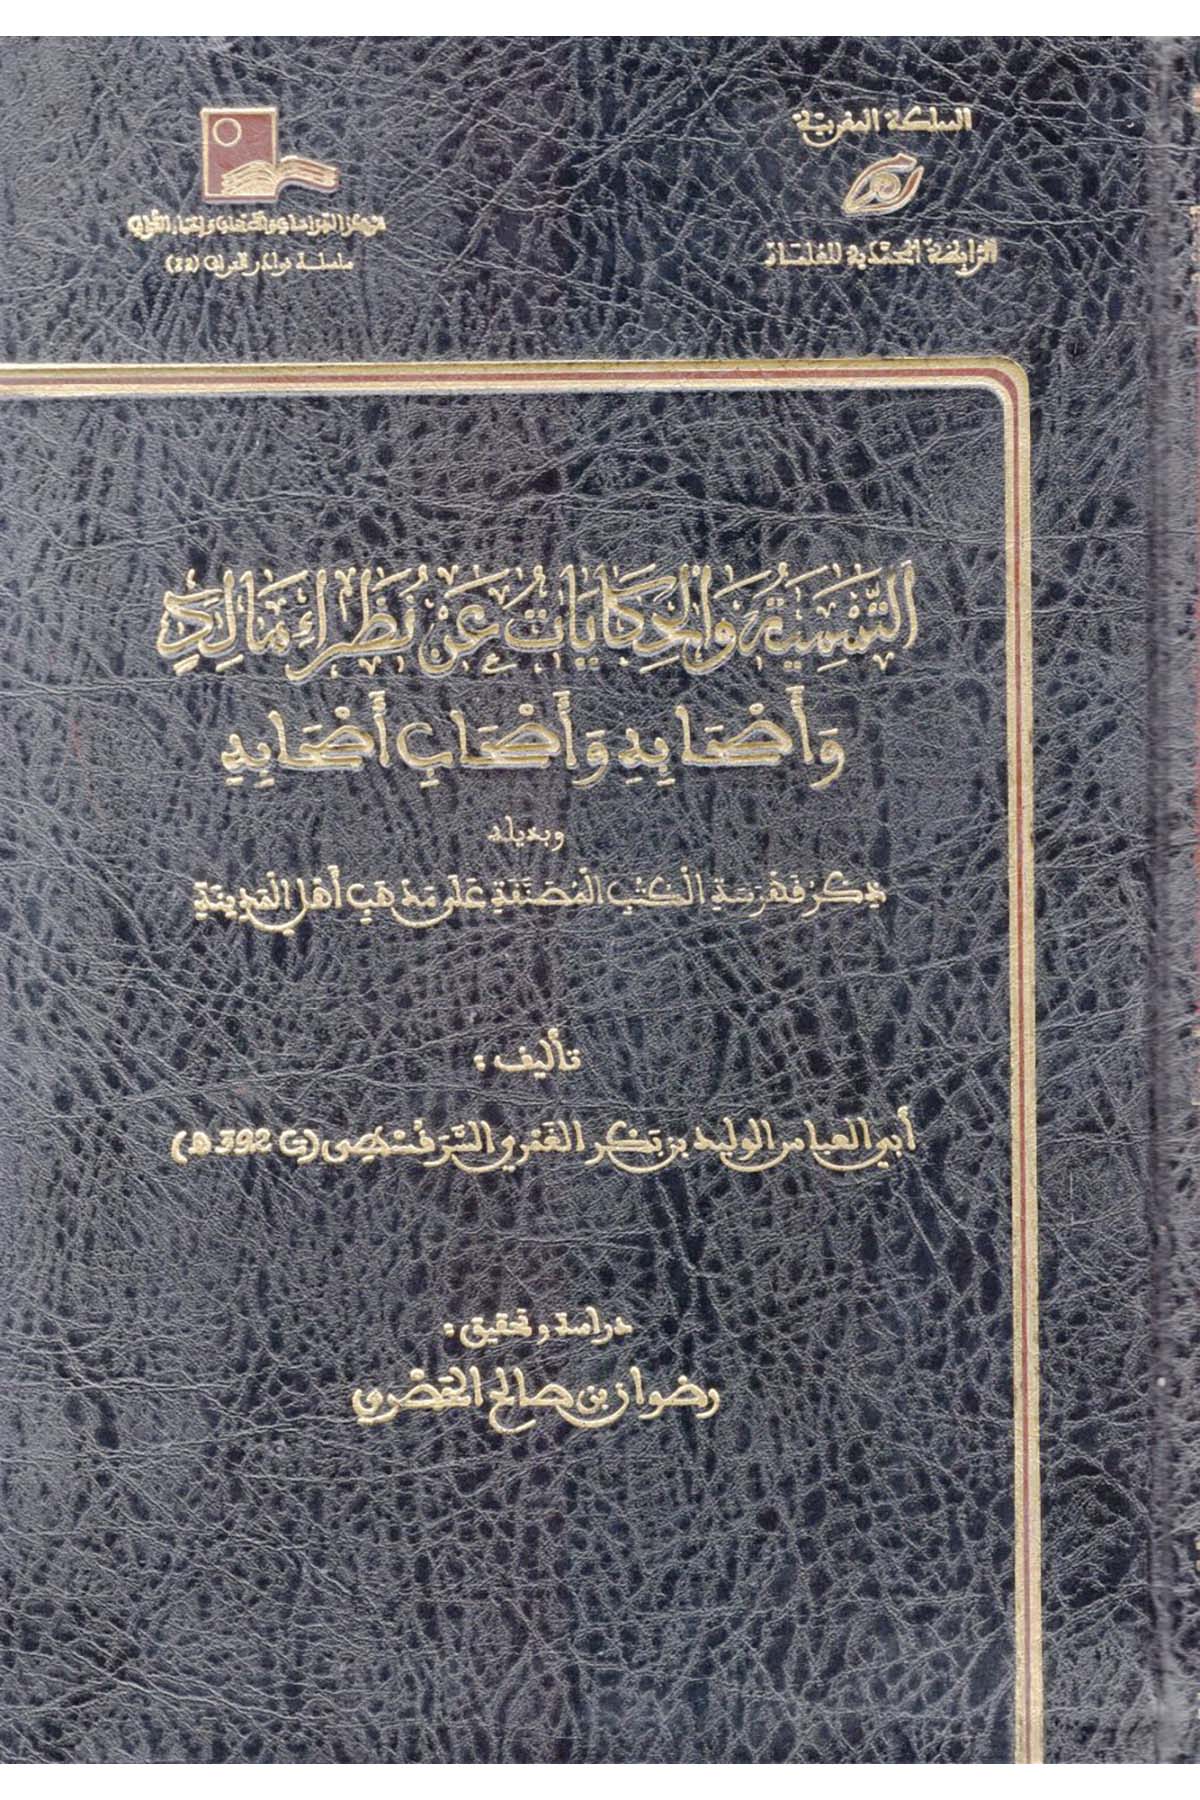 المملكة المغربية
الرابطة المحمدية للعلماء
مركز الدراسات والأبحاث وإحياء التراث
سلسلة نوادر التراث (22)
التَّسْمِيَةُ وَالْحِكَايَاتُ عَنْ نُظَرَاءِ مَالِكٍ
وَأَصْحَابِهِ وَأَصْحَابِ أَصْحَابِهِ
وبذيله
ذِكْرُ فَهْرَسَةِ الْكُتُبِ الْمُصَنَّفَةِ عَلَى مَذْهَبِ أَهْلِ الْمَدِينَةِ
تأليف :
أبي العباس الوليد بن بَكْر الغَمْري السَّرَقُسْطِي (ت 392 هـ)
دراسة وتحقيق :
رضوان بن صالح الحَصْري